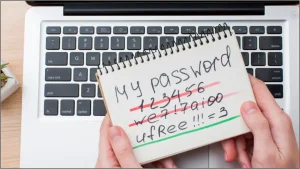 MY PASSWORD
123456
we7!7a!00
ufree!!!=3